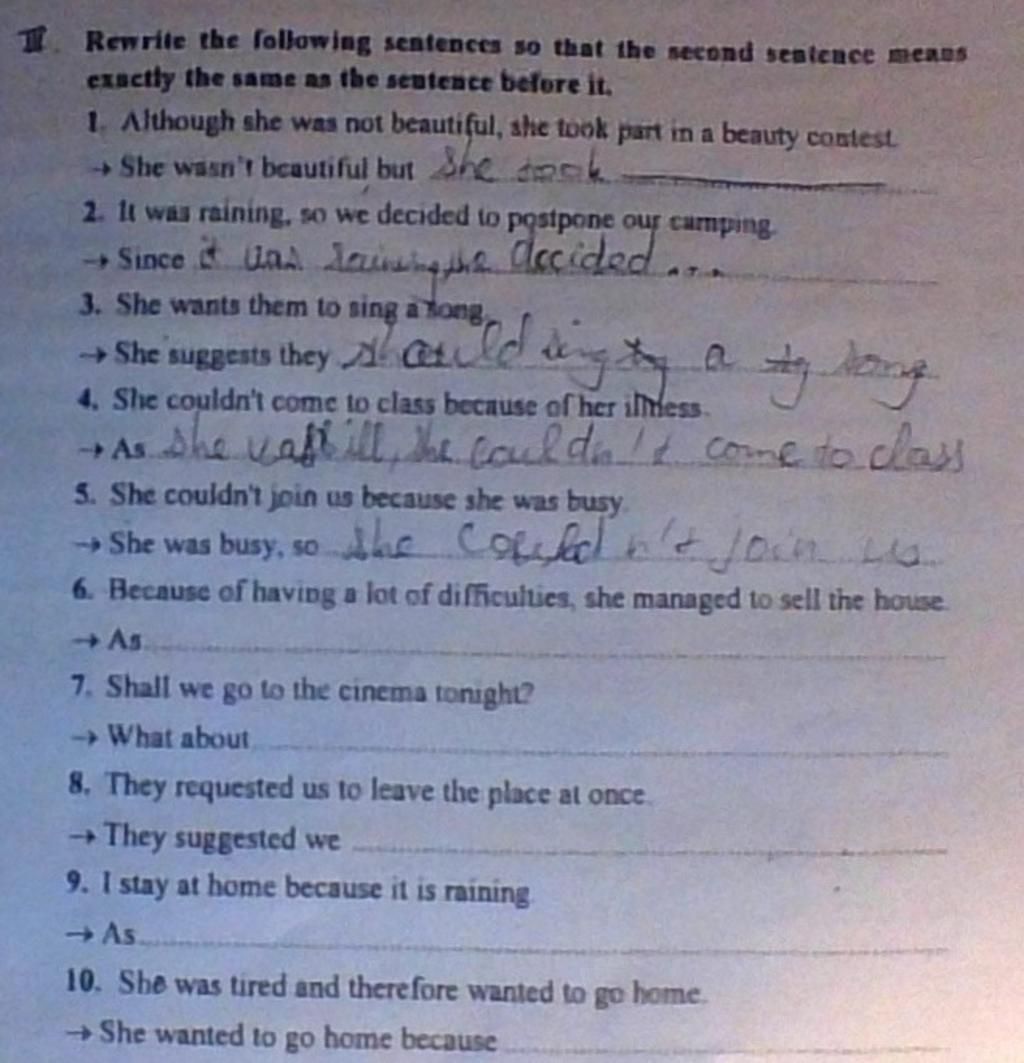 III. Rewrite the following sentences so that the second sentence means
exactly the same as the sentence before it.
1. Although she was not beautiful, she took part in a beauty contest.
→ She wasn't beautiful but she took
2. It was raining, so we decided to postpone our camping.
→ Since it was raining, we decided ...
3. She wants them to sing a song.
→ She suggests they should sing a song
4. She couldn't come to class because of her illness.
→ As she was ill, she couldn't come to class
5. She couldn't join us because she was busy.
→ She was busy, so she couldn't join us
6. Because of having a lot of difficulties, she managed to sell the house.
→ As
7. Shall we go to the cinema tonight?
→ What about
8. They requested us to leave the place at once.
→ They suggested we
9. I stay at home because it is raining
→ As
10. She was tired and therefore wanted to go home.
→ She wanted to go home because